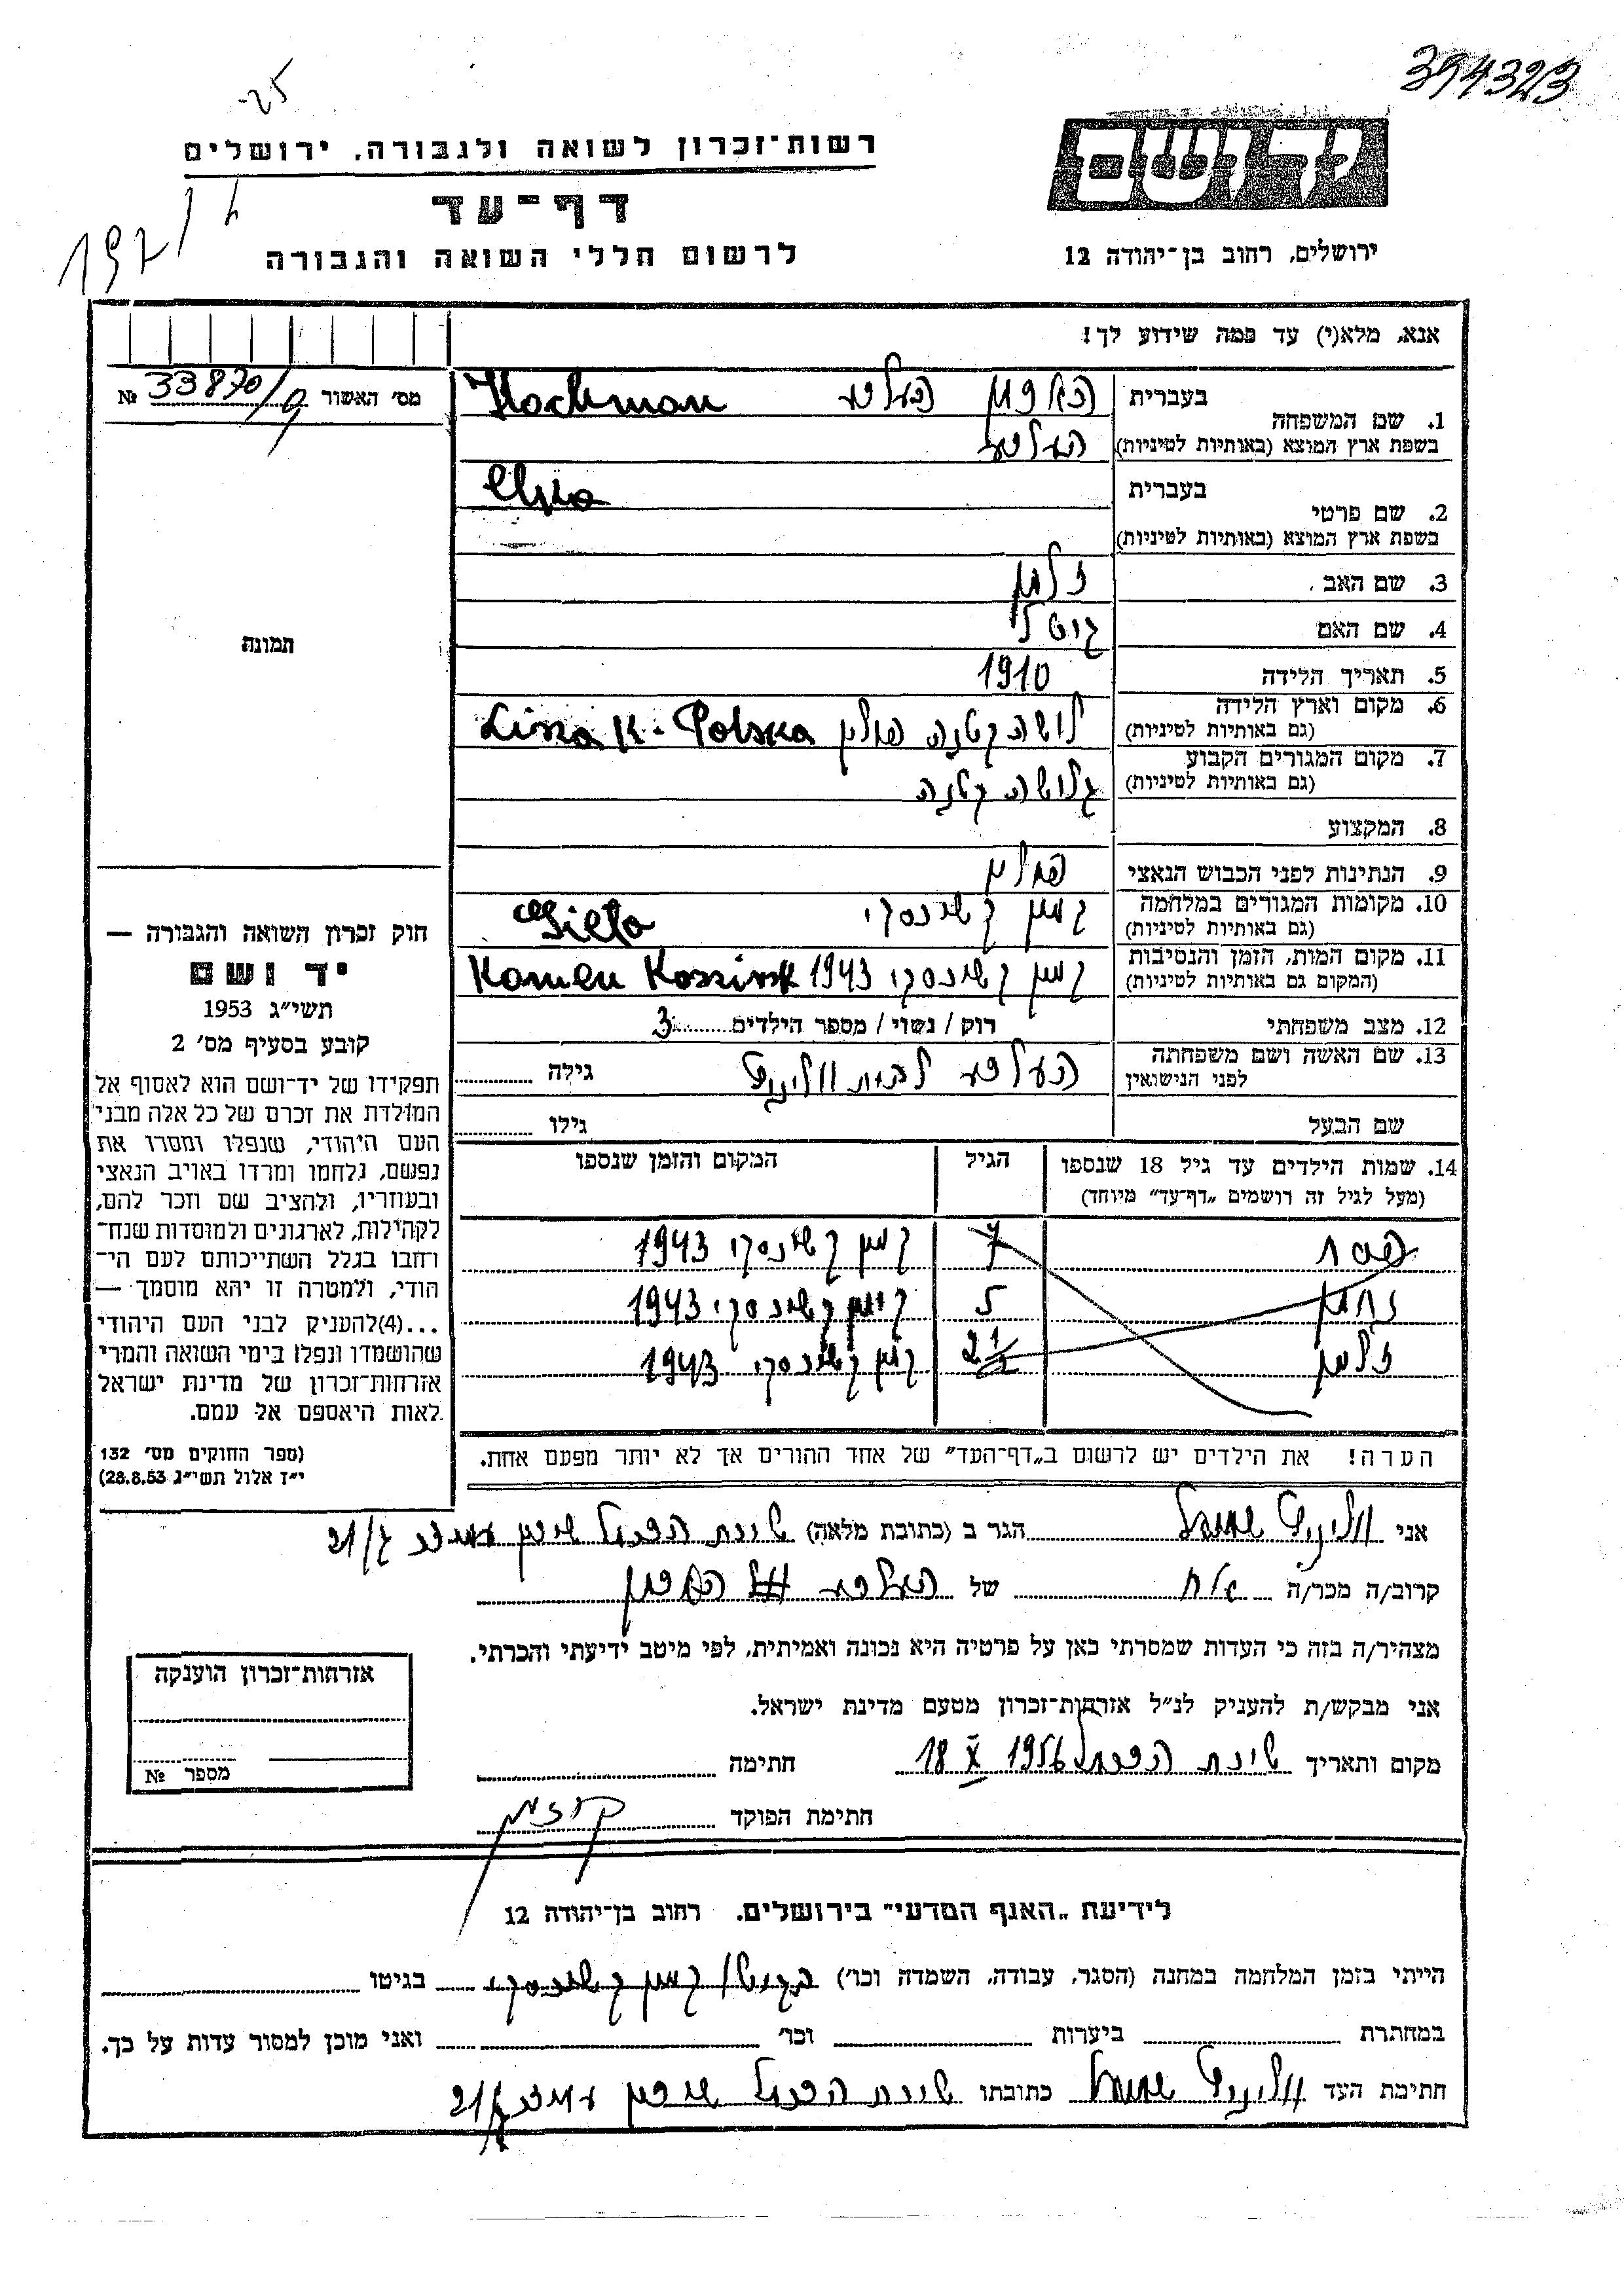 394323
-25
רשות־זכרון לשואה ולגבורה, ירושלים
יד ושם
דף־עד
לרשום חללי השואה והגבורה
ירושלים, רחוב בן־יהודה 12
197
אנא, מלא(י) עד כמה שידוע לך!
מס' האשור № 33870/9
בעברית
Hochman
1. שם המשפחה
בשפת ארץ המוצא (באותיות לטיניות)
בעברית
2. שם פרטי
בשפת ארץ המוצא (באותיות לטיניות)
3. שם האב זלמן
4. שם האם
5. תאריך הלידה 1910
6. מקום וארץ הלידה לושה קטנה פולין Lisza K- Polska
(גם באותיות לטיניות)
7. מקום המגורים הקבוע
(גם באותיות לטיניות) בלושה קטנה
8. המקצוע
9. הנתינות לפני הכבוש הנאצי פולין
10. מקומות המגורים במלחמה קמין קשינסקי
(גם באותיות לטיניות)
11. מקום המות, הזמן והנסיבות קמין קשינסקי 1943 Kamen Koszinsk
(המקום גם באותיות לטיניות)
12. מצב משפחתי רוק / נשוי / מספר הילדים 3
13. שם האשה ושם משפחתה
לפני הנישואין גילה
שם הבעל גילו
14. שמות הילדים עד גיל 18 שנספו הגיל המקום והזמן שנספו
(מעל לגיל זה רושמים „דף־עד" מיוחד)
פסח 7 קמין קשינסקי 1943
נחמן 5 קמין קשינסקי 1943
זלמן 2½ קמין קשינסקי 1943
הערה! את הילדים יש לרשום ב„דף־העד" של אחד ההורים אך לא יותר מפעם אחת.
תמונה
חוק זכרון השואה והגבורה —
יד ושם
תשי"ג 1953
קובע בסעיף מס' 2
תפקידו של יד־ושם הוא לאסוף אל
המולדת את זכרם של כל אלה מבני
העם היהודי, שנפלו ומסרו את
נפשם, נלחמו ומרדו באויב הנאצי
ובעוזריו, ולהציב שם וזכר להם,
לקהילות, לארגונים ולמוסדות שנח־
רבו בגלל השתייכותם לעם הי־
הודי, ולמטרה זו יהא מוסמך —
...(4)להעניק לבני העם היהודי
שהושמדו ונפלו בימי השואה והמרי
אזרחות־זכרון של מדינת ישראל
לאות היאספם אל עמם.
(ספר החוקים מס' 132
י"ז אלול תשי"ג 28.8.53)
אני שמואל הגר ב (כתובת מלאה) שכונת הכרמל 21/
קרוב/ה מכר/ה אח של
מצהיר/ה בזה כי העדות שמסרתי כאן על פרטיה היא נכונה ואמיתית, לפי מיטב ידיעתי והכרתי.
אני מבקש/ת להעניק לנ"ל אזרחות־זכרון מטעם מדינת ישראל.
מקום ותאריך שכונת הכרמל 18 X 1956 חתימה
חתימת הפוקד
אזרחות־זכרון הוענקה
מספר №
לידיעת „האגף המדעי" בירושלים, רחוב בן־יהודה 12
הייתי בזמן המלחמה במחנה (הסגר, עבודה, השמדה וכו') בגיטו קמין קשינסקי בגיטו
במחתרת ביערות וכו' ואני מוכן למסור עדות על כך.
חתימת העד שמואל כתובתו שכונת הכרמל 21/